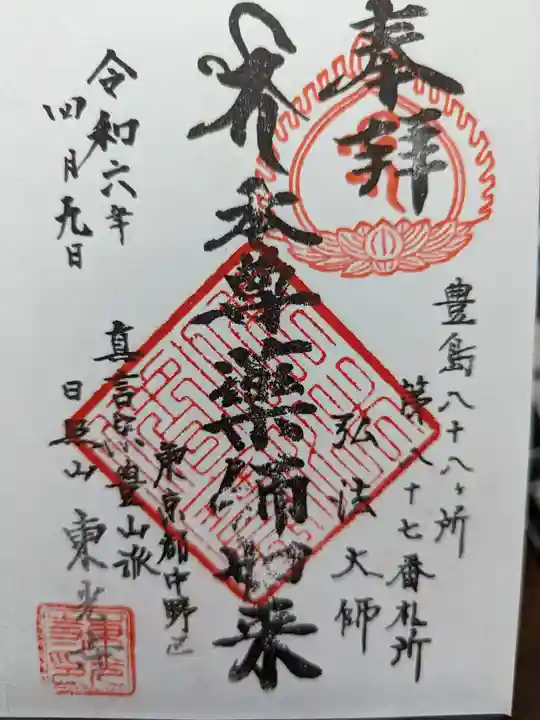 奉拝
豊島八十八ヶ所
第八十七番札所
弘法大師
本尊薬師如来
東京都中野区
真言宗豊山派
日照山 東光寺
令和六年
四月九日